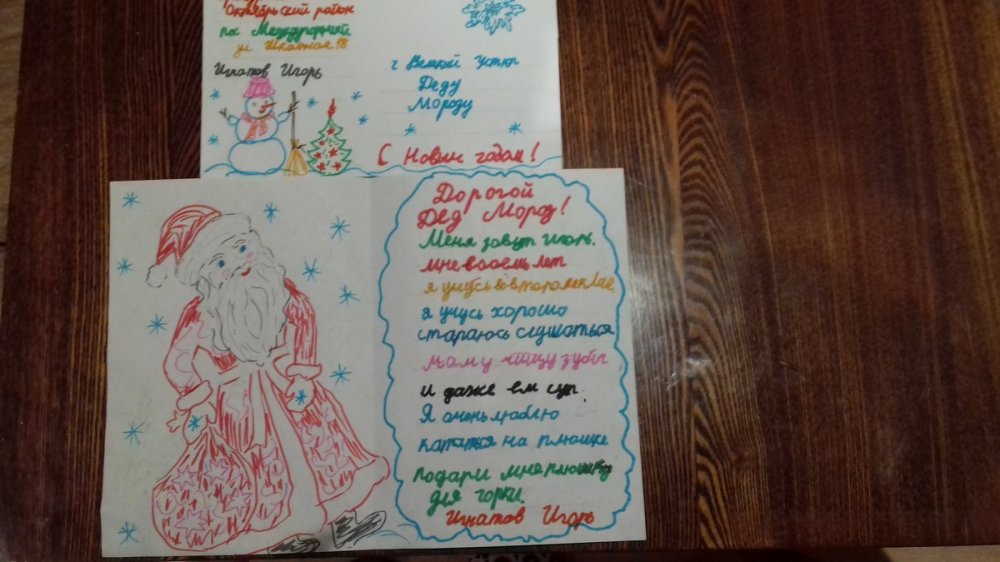 Октябрьский район
пос Междуречный
ул. Школьная 18
Игнатов Игорь
г Великий Устюг
Деду
Морозу
С Новым годом!
Дорогой
Дед Мороз!
Меня зовут Игорь.
мне восемь лет
я учусь во втором классе
я учусь хорошо
стараюсь слушаться
маму чищу зубы
и даже ем суп.
Я очень люблю
кататься на плюшке
подари мне плюшку
для горки.
Игнатов Игорь